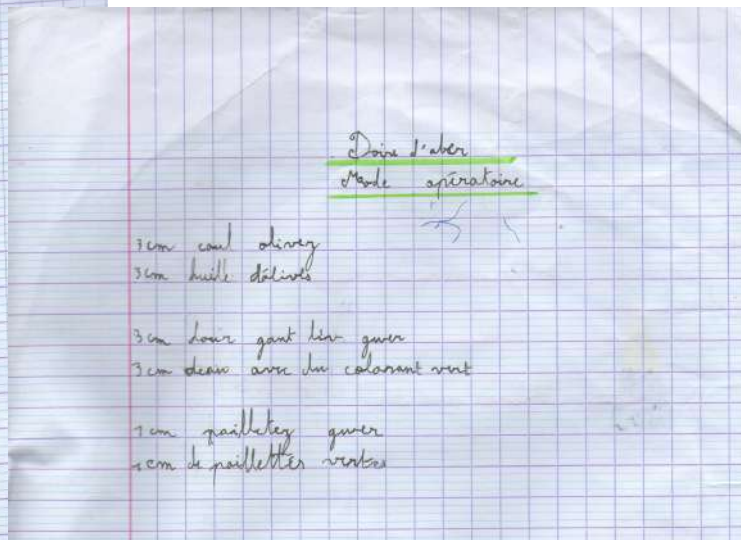 Doire d'aber
Mode opératoire
3 cm coul olivez
3 cm huile dólives
3 cm dour gant liv gwer
3 cm deau avec du colorant vert
1 cm pailletez gwer
1 cm de paillettes vertes